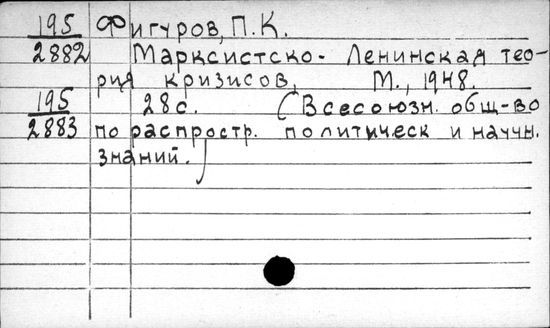 195 Фигуров, П.К.
2882 Марксистско- Ленинская тео-
рия кризисов, М., 1948.
195 28 с. (Всесоюзн. общ-во
2883 по распростр. политическ и научн.
знаний.)